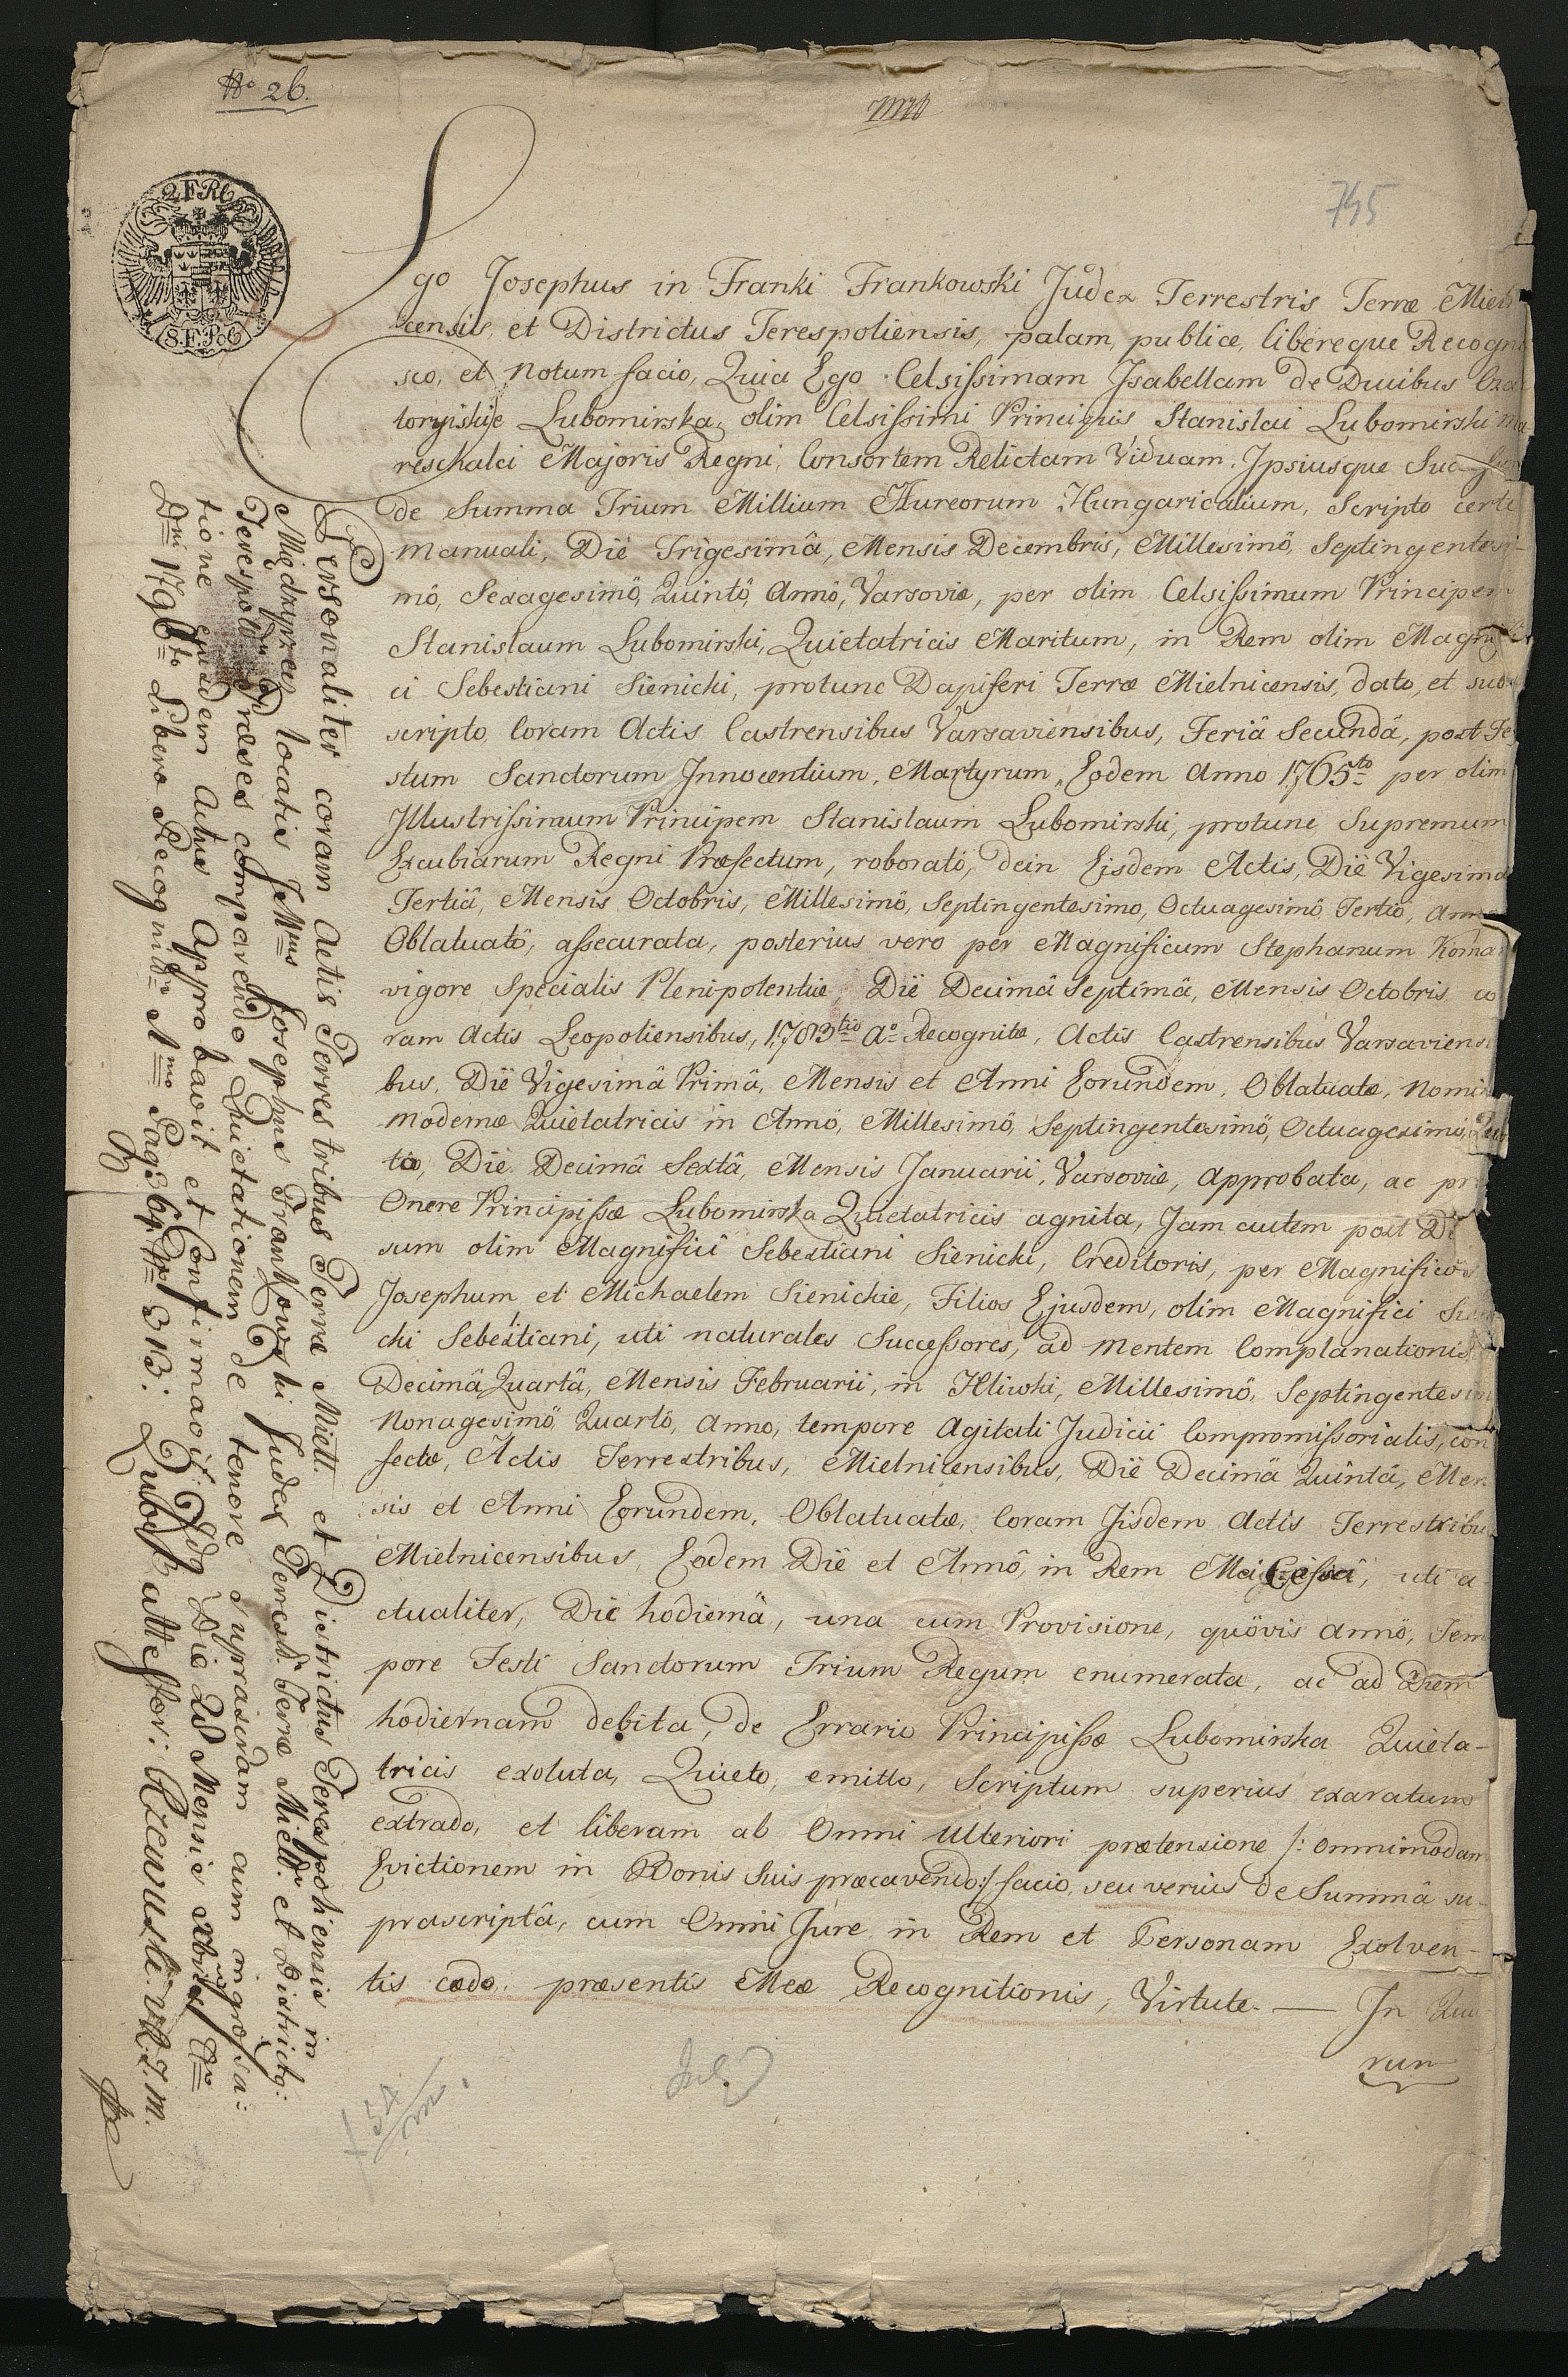 No 26.
745
2 F Rh
S. F. Po
Ego Josephus in Franki Frankowski Judex Terrestris Terræ Miel
censis, et Districtus Terespoliensis, palam, publice, libereque Recogn
sco, et notum facio, Quia Ego Celsissimam Isabellam de Ducibus Cza
toryiskie Lubomirska, olim Celsissimi Principis Stanislai Lubomirski Ma
reschalci Majoris Regni, Consortem Relictam Viduam, Ipsiusque
de Summa Trium Millium Aureorum Hungaricalium, Scripto certi
Manuali, Dië Trigesimâ, Mensis Decembris, Millesimô, Septingentesi-
mô, Sexagesimô, Quintô, Annô, Varsoviæ, per olim Celsissimum Principem
Stanislaum Lubomirski, Quietatricis Maritum, in Rem olim Magnifi
ci Sebestiani Sienicki, protunc Dapiferi Terræ Mielnicensis, dato, et sub
scripto, Coram Actis Castrensibus Varsaviensibus, Feriâ Secundâ, post Fe
stum Sanctorum Innocentium, Martyrum, Eodem Anno 1765to per olim
Illustrissimum Principem Stanislaum Lubomirski, protunc Supremum
Excubiarum Regni Præfectum, roboratô, dein Eisdem Actis, Dië Vigesimâ
Tertiâ, Mensis Octobris, Millesimô, Septingentesimo, Octuagesimô Tertio, Anno
Oblatuatô, assecurata, posterius vero per Magnificum Stephanum Komar
vigore Specialis Plenipotentiæ, Dië Decimâ Septimâ, Mensis Octobris co
ram Actis Leopoliensibus, 1783tio Ao Recognitæ, Actis Castrensibus Varsaviensi
bus, Dië Vigesimâ Primâ, Mensis et Anni Eorundem, Oblatuatæ, Nomin
Modernæ Quietatricis in Annô, Millesimô, Septingentesimô, Octuagesimô,
to, Dië Decimâ Sextâ, Mensis Januarii, Varsoviæ, approbata, ac pr
Onere Principissæ Lubomirska Quietatricis agnita, Jam autem post De
sum olim Magnifici Sebestiani Sienicki, Creditoris, per Magnificos
Josephum et Michaelem Sienickie, Filios Ejusdem, olim Magnifici Sie
cki Sebestiani, uti naturales Successores, ad mentem Complanationis
Decimâ Quartâ, Mensis Februarii, in Kliwki, Millesimô, Septingentesi
Nonagesimô Quartô, Anno, tempore Agitati Judicii Compromissorialis, con
fectæ, Actis Terrestribus, Mielnicensibus, Dië Decimâ Quintâ, Men
sis et Anni Eorundem, Oblatuatæ, Coram Jisdem Actis Terrestribu
Mielnicensibus, Eodem Dië et Annô, in Rem Mei Cessa, uti a
ctualiter, Die hodiernâ, una cum Provisione, quôvis Annô, Tem
pore Festi Sanctorum Trium Regum enumerata, ac ad Diem
hodiernam debita, de Errario Principissæ Lubomirska Quieta-
tricis exoluta, Quieto, emitto, Scriptum superius exaratum
extrado, et liberam ab Omni Ulteriori prætensione /: omnimodam
Evictionem in Bonis Suis præcavendo:/ facio, seu verius de Summâ su-
prascriptâ, cum Omni Jure in Rem et Personam Exolven-
tis cædo. præsentis Meæ Recognitionis, Virtute. — In Quo
rum
Personaliter coram Actis Terrestribus Terræ Mieln. et Districtus Terespoliensis in
Międzyrzec locatis JMcus Josephus Frankowski Judex Terestr. Terræ Mieln. et Districtq:
Terespolu. Præses comparendo Quietationem de tenore supraserdam cum ingrossa:
tione equidem Actus Approbavit et Confirmavit. Die 28 Mensis Xbris Ao
Dni 1796to Libero Recognitio Pag 367 No 313: